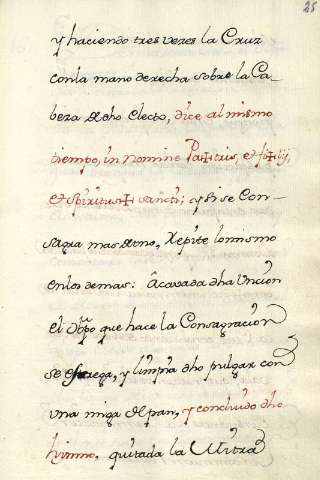 25
y haciendo tres vezes la Cruz
con la mano derecha sobre la Ca-
beza de dho Electo, dice al mismo
tiempo, in nomine Pa✠tris, et fi✠lij,
et Spiritus✠ sancti; y si se Con-
sagra mas de uno, Repite lo mismo
en los demas: Acavada dha Uncion
el Obpo que hace la Consagracion
se estrega, y limpia dho pulgar con
una miga de pan, y concluido dho
hymno, quitada la Mitra